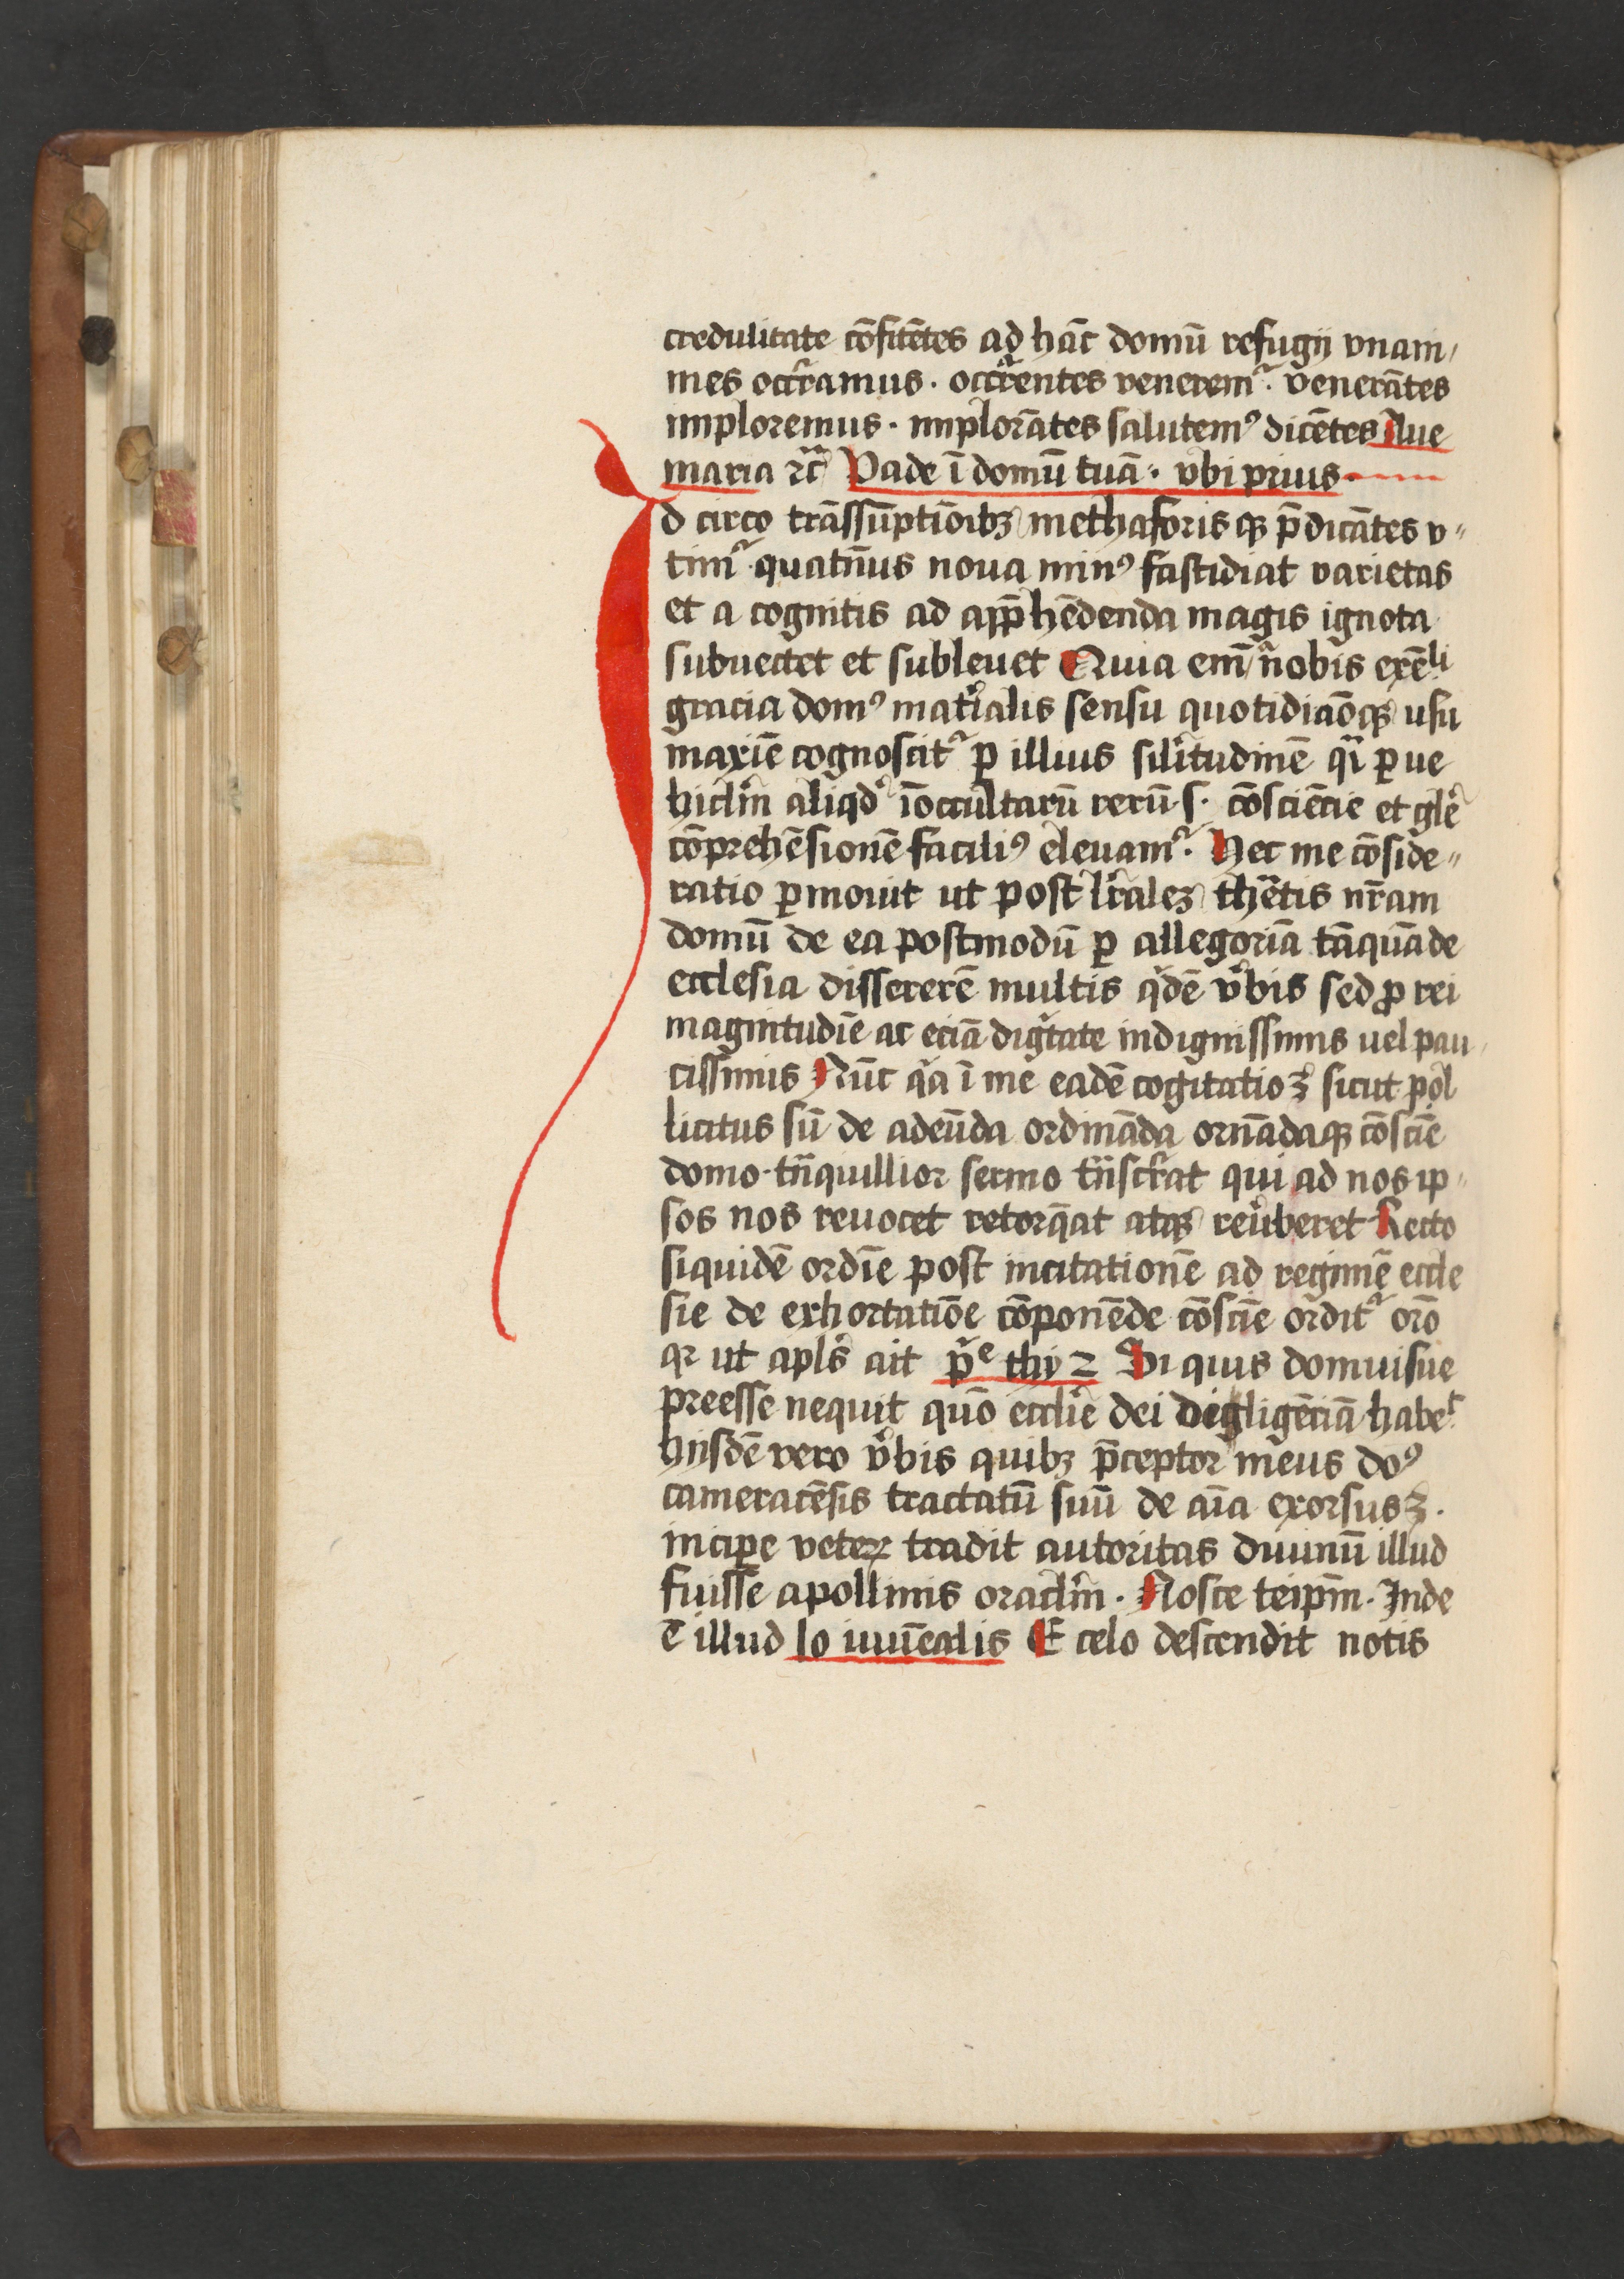 credulitate cōfitētes ad hāc domū refugij vnani/
mes occr̄ramus. occr̄rentes veneremr̉. venerātes
imploremus. implorātes salutemꝰ dicētes Aue
maria ⁊c̄ Vade ī domū tuā. vbi prius.
Id circo trāssūptiōibꝫ methaforisqꝫ p̄dicātes v〃
timr̉ quatn̄us noua minꝰ fastidiat varietas
et a cognitis ad app̄hēdenda magis ignota
subuectet et subleuet Quia em̄ nobis exēli
gracia domꝰ mat̉ialis sensu quotidiaōqꝫ usu
maxīe cognoscitr̉ ꝑ illius sil̄itudinē qī ꝑ ve
hicl̄m aliqd̉ īoccultarū rerū s. cōsciēcie et gl̄e
cōprehēsionē faciliꝰ eleuamr̉. Hec me cōside〃
ratio ꝑmouit ut post lr̄aleꝫ thētis nr̄am
domū de ea postmodū ꝑ allegoriā tāquā de
ecclesia dissererē multis qd̄ē v̉bis sed ꝓ rei
magnitudīe ac eciā dign̄tate indignissimis uel pau
cissimis Nūc qā ī me eadē cogitatio ꝫ̄ sicut pol
licitus sū de adeūda ordināda ornādaqꝫ cōsciē
domo. tn̄quillior sermo tn̄scr̄rat qui ad nos ip〃
sos nos reuocet retorq̄at atqꝫ reủberet Recto
siquidē ordīe post incitationē ad regimē eccle
sie de exhortatiōe cōponēde cōsciē ordītr̉ orō
qꝛ ut apl̄s ait p̄e thy 2 Si quis domui sue
preesse nequit quō eccl̄ie dei diligēciā habet
hijsdē vero v̉bis quibꝫ p̄ceptor meus doꝰ
cameracēsis tractatū suū de aīa exorsus ꝫ̄.
incipe veteꝝ tradit autoritas diuinū illud
fuisse apollinis oracl̄m. Nosce teip̄m. Inde
ē illud Io iuuēalis E celo descendit notis